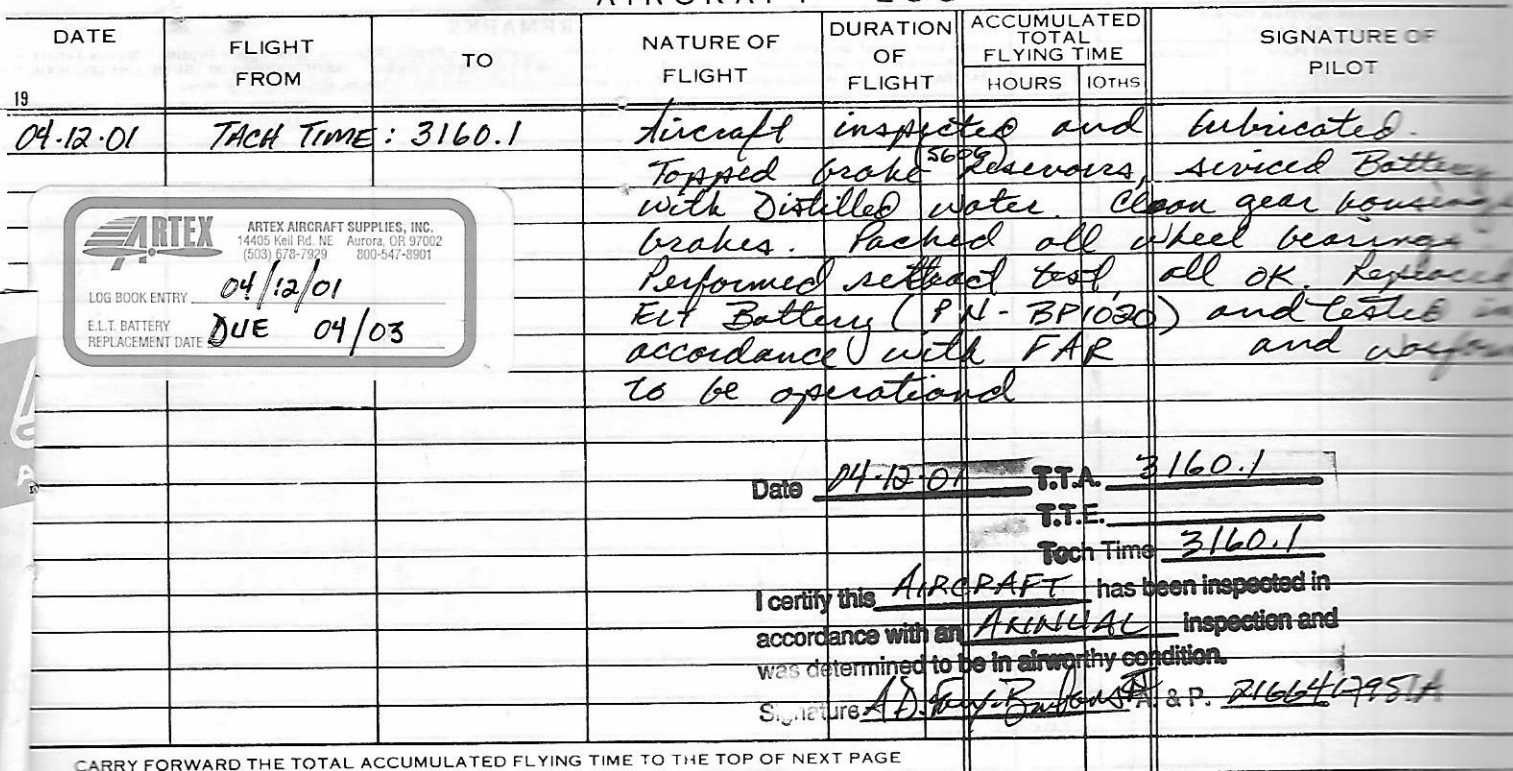 AIRCRAFT LOG
DATE
FLIGHT FROM
TO
NATURE OF FLIGHT
DURATION OF FLIGHT
ACCUMULATED TOTAL FLYING TIME
HOURS
10THS
SIGNATURE OF PILOT
19
04·12·01 TACH TIME: 3160.1 Aircraft inspected and lubricated.
Topped brake (5606) Reservoirs, serviced Battery
with Distilled water. Clean gear housings
brakes. Packed all wheel bearings
Performed retract test, all OK. Replaced
Elt Battery (PN-BP1020) and tested in
accordance with FAR and was
to be operational
ARTEX
ARTEX AIRCRAFT SUPPLIES, INC.
14405 Keil Rd. NE Aurora, OR 97002
(503) 678-7929 800-547-8901
LOG BOOK ENTRY 04/12/01
E.L.T. BATTERY
REPLACEMENT DATE DUE 04/03
Date 04-12-01 T.T.A. 3160.1
T.T.E.
Tach Time 3160.1
I certify this AIRCRAFT has been inspected in
accordance with an ANNUAL inspection and
was determined to be in airworthy condition.
Signature A. & P.
CARRY FORWARD THE TOTAL ACCUMULATED FLYING TIME TO THE TOP OF NEXT PAGE